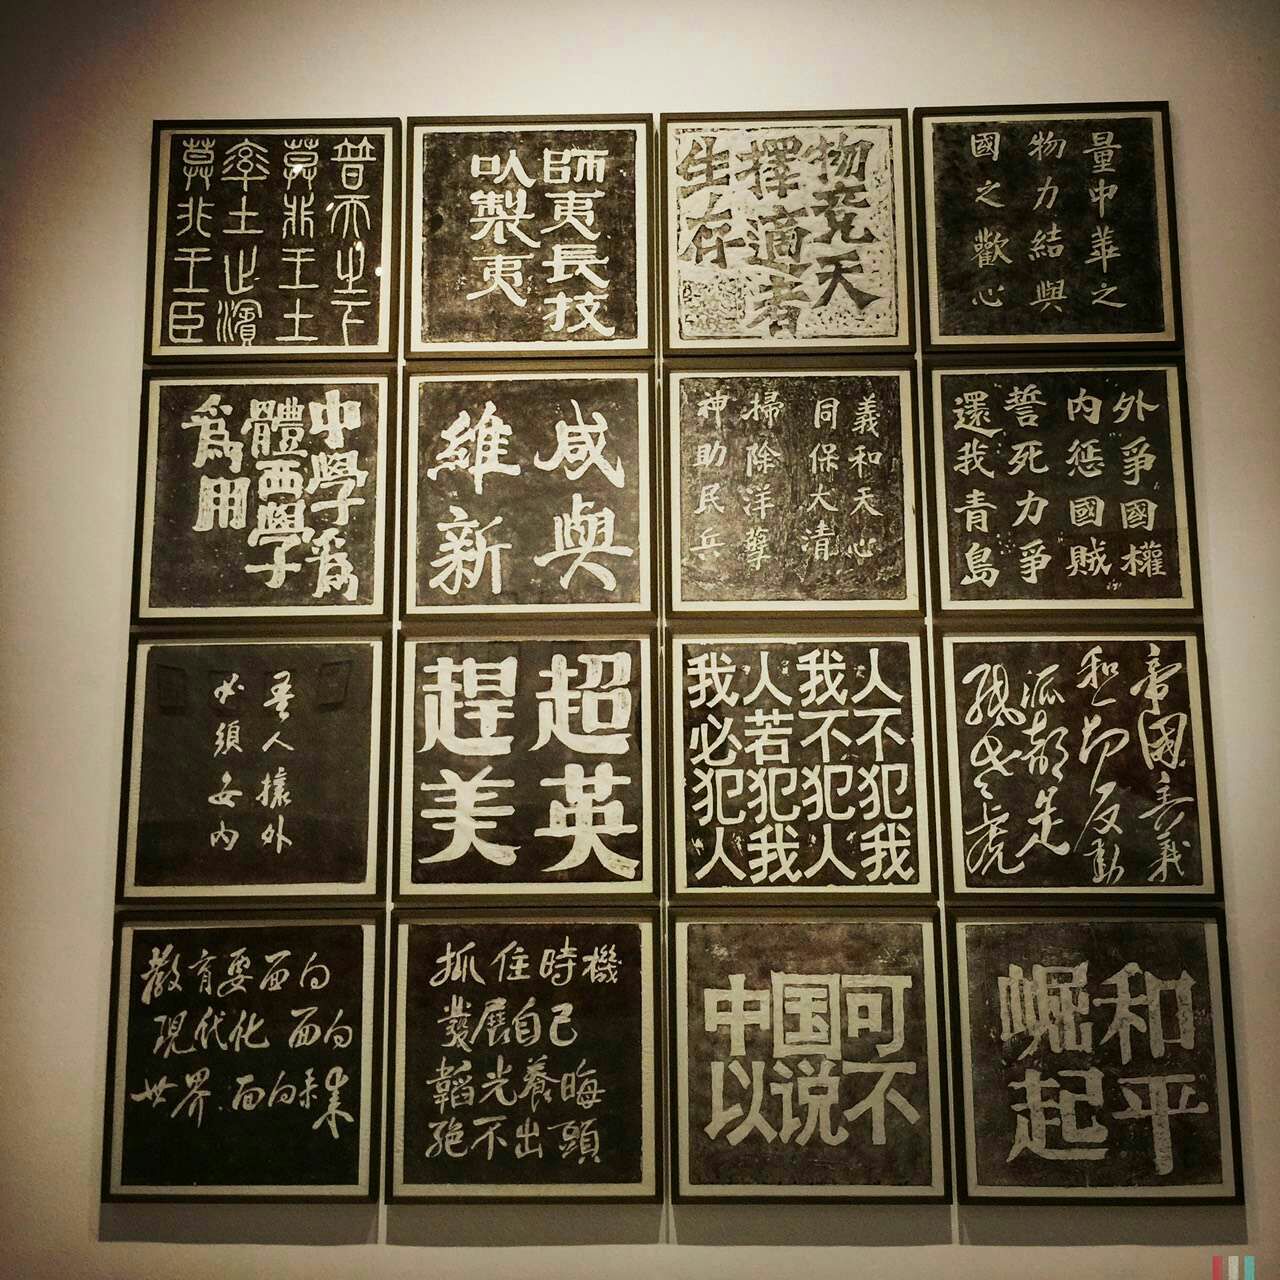 普天之下
莫非王土
率土之濱
莫非王臣
師夷長技
以製夷
物竞天
擇適者
生存
量中華之
物力結與
國之歡心
中學爲
體西學
爲用
咸與
維新
義和天心
同保大清
掃除洋孽
神助民兵
外爭國權
内惩國賊
誓死力爭
還我青島
吾人攘外
必須安内
超英
趕美
人不犯我
我不犯人
人若犯我
我必犯人
帝國主義
和一切反動
派都是
紙老虎
教育要面向
現代化 面向
世界 面向未來
抓住時機
發展自己
韜光養晦
絶不出頭
中国可
以说不
和平
崛起